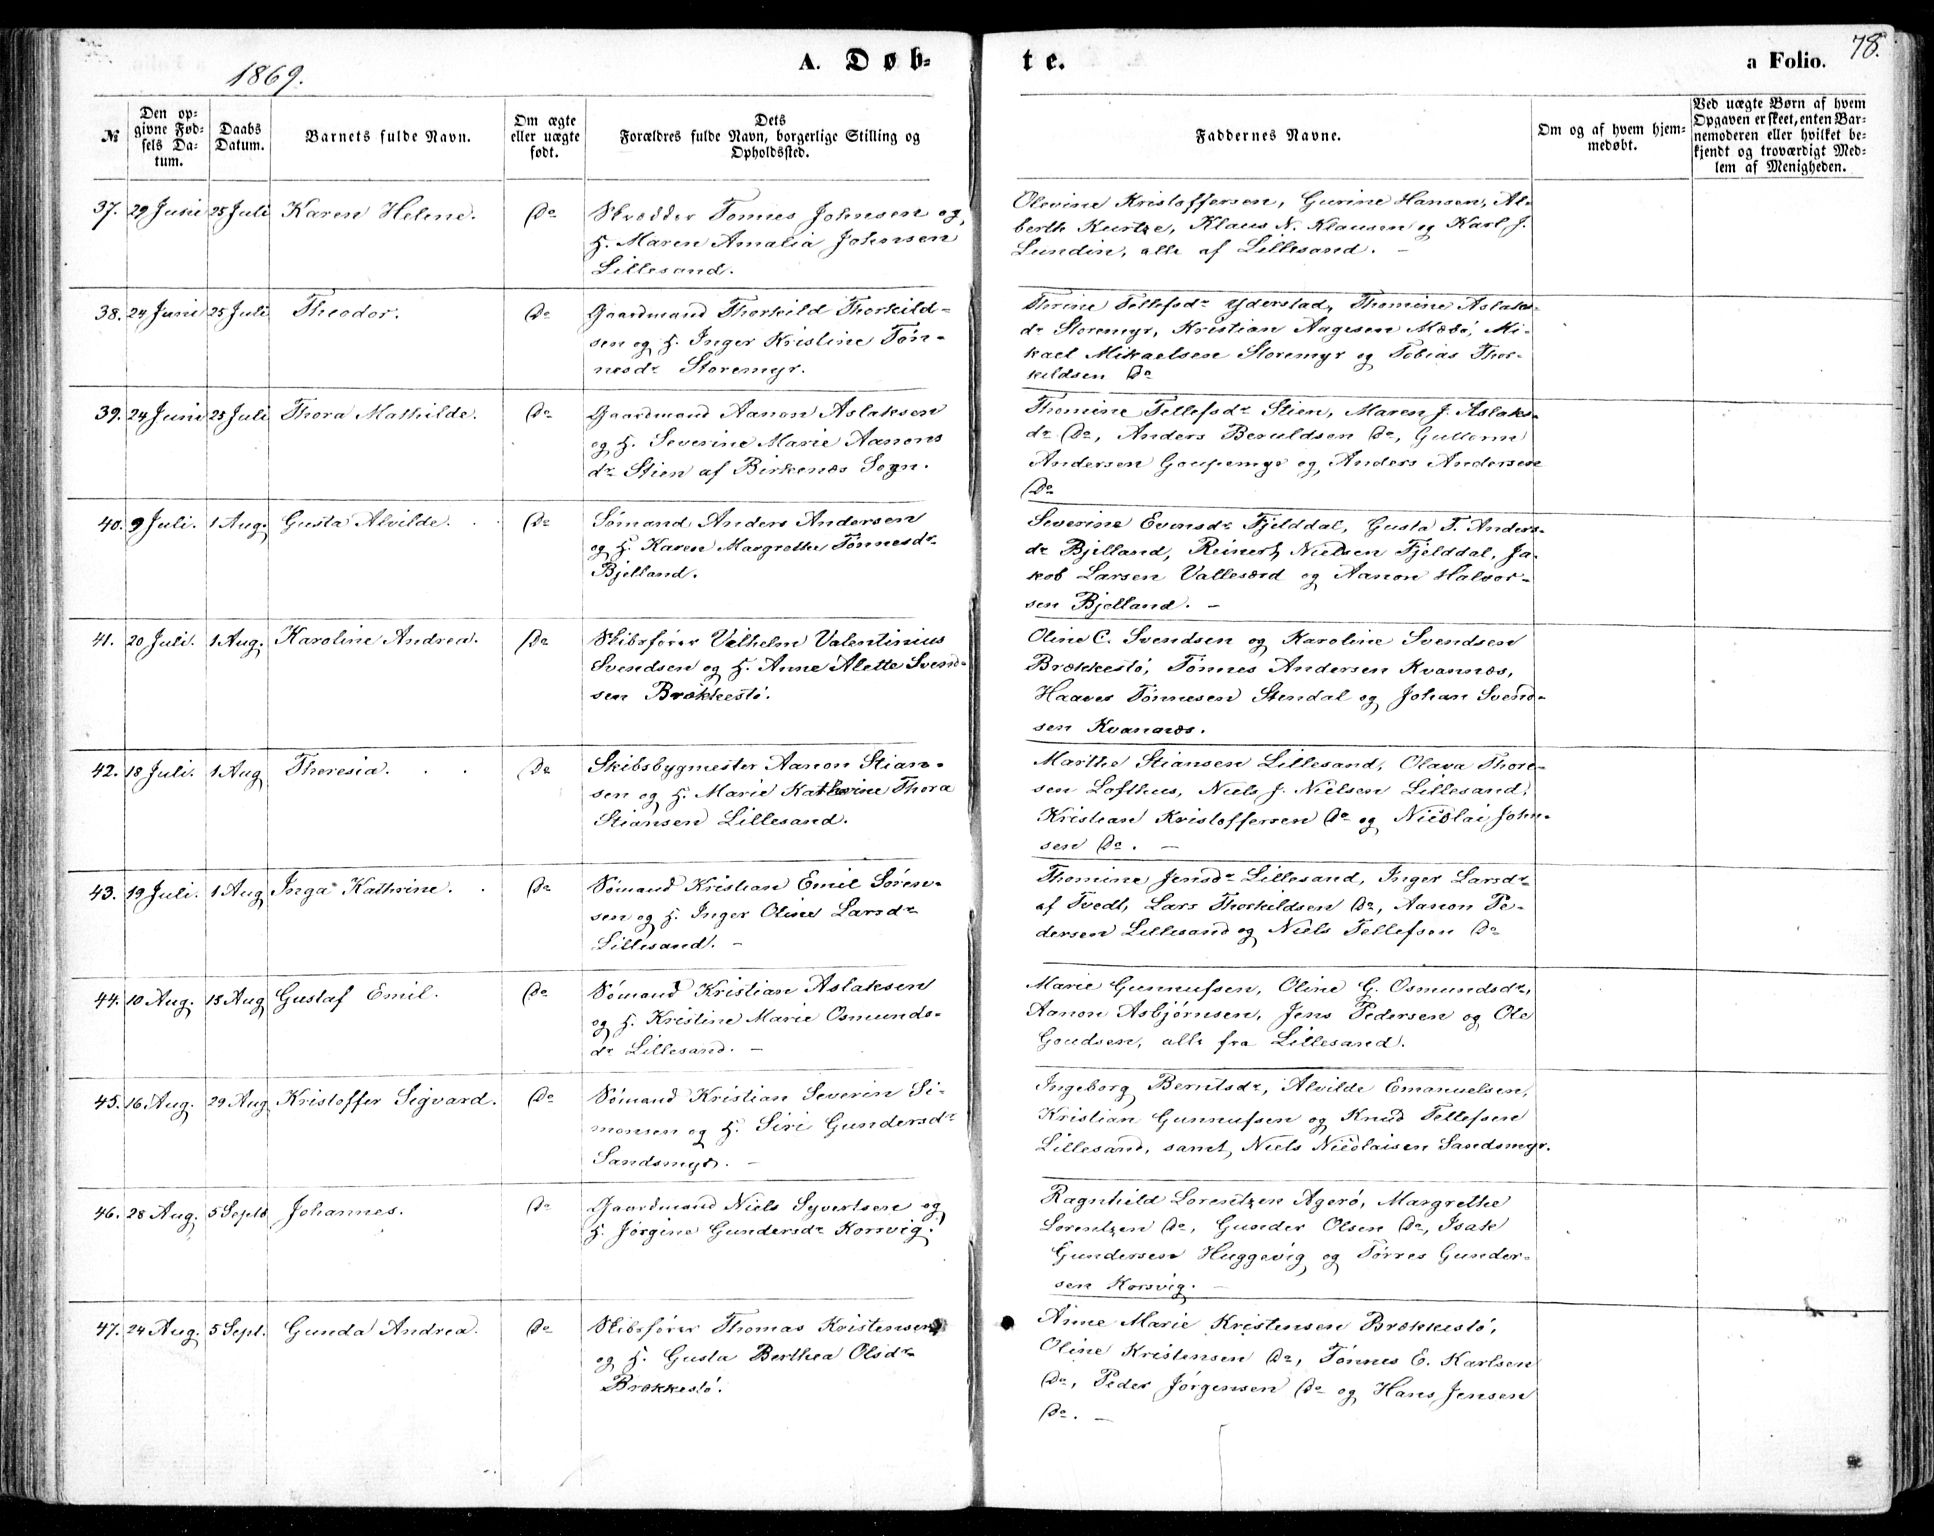 1869.
A. Døb-
te.
a Folio.
78.
№
Den op-
givne Fød-
sels Da-
tum.
Daabs
Datum.
Barnets fulde Navn.
Om ægte
eller uægte
født.
Dets
Forældres fulde Navn, borgerlige Stilling og
Opholdssted.
Faddernes Navne.
Om og af hvem hjem-
medøbt.
Ved uægte Børn af hvem
Opgaven er skeet, enten Bar-
nemoderen eller hvilket be-
kjendt og troværdigt Med-
lem af Menigheden.
37. 29 Juni 25 Juli Karen Helene. Do Skrædder Tønnes Johnsen og
H. Maren Amalia Johnsen
Lillesand.
Olevine Kristoffersen, Gurine Hansen, Al-
berth Kurtze, Klaus N. Klausen og Karl J.
Lundin, alle af Lillesand. –
38. 24 Juni 25 Juli Theodor. Do Gaardmand Thorkild Thorkild-
sen og H. Inger Kristine Tøn-
nesdr Storemyr.
Thrine Tellefsdr Yderstad, Thomine Aslaks-
dr Storemyr, Kristian Aagesen Mæbø, Mi-
kael Mikaelsen Storemyr og Tobias Thor-
kildsen Do
39. 24 Juni 25 Juli Thora Mathilde. Do Gaardmand Aanon Aslaksen
og H. Severine Marie Aanons
dr Stien af Birkenæs Sogn.
Thomine Tellefsdr Stien, Maren J. Aslaks-
dr Do, Anders Beruldsen Do, Guttorm
Andersen Goupemyr og Anders Andersen
Do
40. 9 Juli. 1 Aug. Gusta Alvilde. Do Sømand Anders Andersen
og H. Karen Margrethe Tønnesdr
Bjelland.
Severine Evensdr Fjelddal, Gusta T. Anders-
dr Bjelland, Reinert Nielsen Fjelddal, Ja-
kob Larsen Vallesværd og Aanon Halvor-
sen Bjelland. –
41. 20 Juli. 1 Aug. Karoline Andrea. Do Skibsfører Vilhelm Valentinius
Svendsen og H. Anne Alette Svend-
sen Brækkestø.
Oline C. Svendsen og Karoline Svendsen
Brækkestø, Tønnes Andersen Kvannæs,
Haaver Tønnesen Stendal og Johan Svend-
sen Kvannæs.
42. 18 Juli. 1 Aug Theresia. Do Skibsbygmester Aanon Stian-
sen og H. Marie Kathrine Thora
Stiansen Lillesand.
Marthe Stiansen Lillesand, Olava Thore-
sen Lofthus, Niels J. Nielsen Lillesand,
Kristian Kristoffersen Do og Nicolai John-
sen Do. –
43. 19 Juli. 1 Aug Inga Kathrine. Do Sømand Kristian Emil Søren-
sen og H. Inger Oline Larsdr
Lillesand. –
Thomine Jensdr Lillesand, Inger Larsdr
af Tvedt, Lars Thorkildsen Do, Aanon Pe-
dersen Lillesand og Niels Tellefsen Do
44. 10 Aug. 15 Aug Gustaf Emil. Do Sømand Kristian Aslaksen
og H. Kristine Marie Osmunds-
dr Lillesand. –
Marie Gunnufsen, Oline G. Osmundsdr,
Aanon Asbjørnsen, Jens Pedersen og Ole
Goudsen, alle fra Lillesand.
45. 16 Aug. 29 Aug Kristoffer Sigvard. Do Sømand Kristian Severin Si-
monsen og H. Siri Gundersdr
Sandsmyr. –
Ingeborg Berntsdr, Alvilde Emanuelsen,
Kristian Gunnufsen og Knud Tellefsen
Lillesand, samt Niels Nicolaisen Sandsmyr.
46. 28 Aug. 5 Septb Johannes. Do Gaardmand Niels Syvertsen og
H. Jørgine Gundersdr Korsvig.
Ragnhild Lorentzen Agerø, Margrethe
Lorentzen Do, Gunder Olsen Do, Isak
Gundersen Huggevig og Tørres Gunder-
sen Korsvig. –
47. 24 Aug. 5 Sept. Gunda Andrea. Do Skibsfører Thomas Kristensen
og H. Gusta Berthea Olsdr
Brækkestø.
Anne Marie Kristensen Brækkestø,
Oline Kristensen Do, Tønnes E. Karlsen
Do, Peder Jørgensen Do og Hans Jensen
Do. –